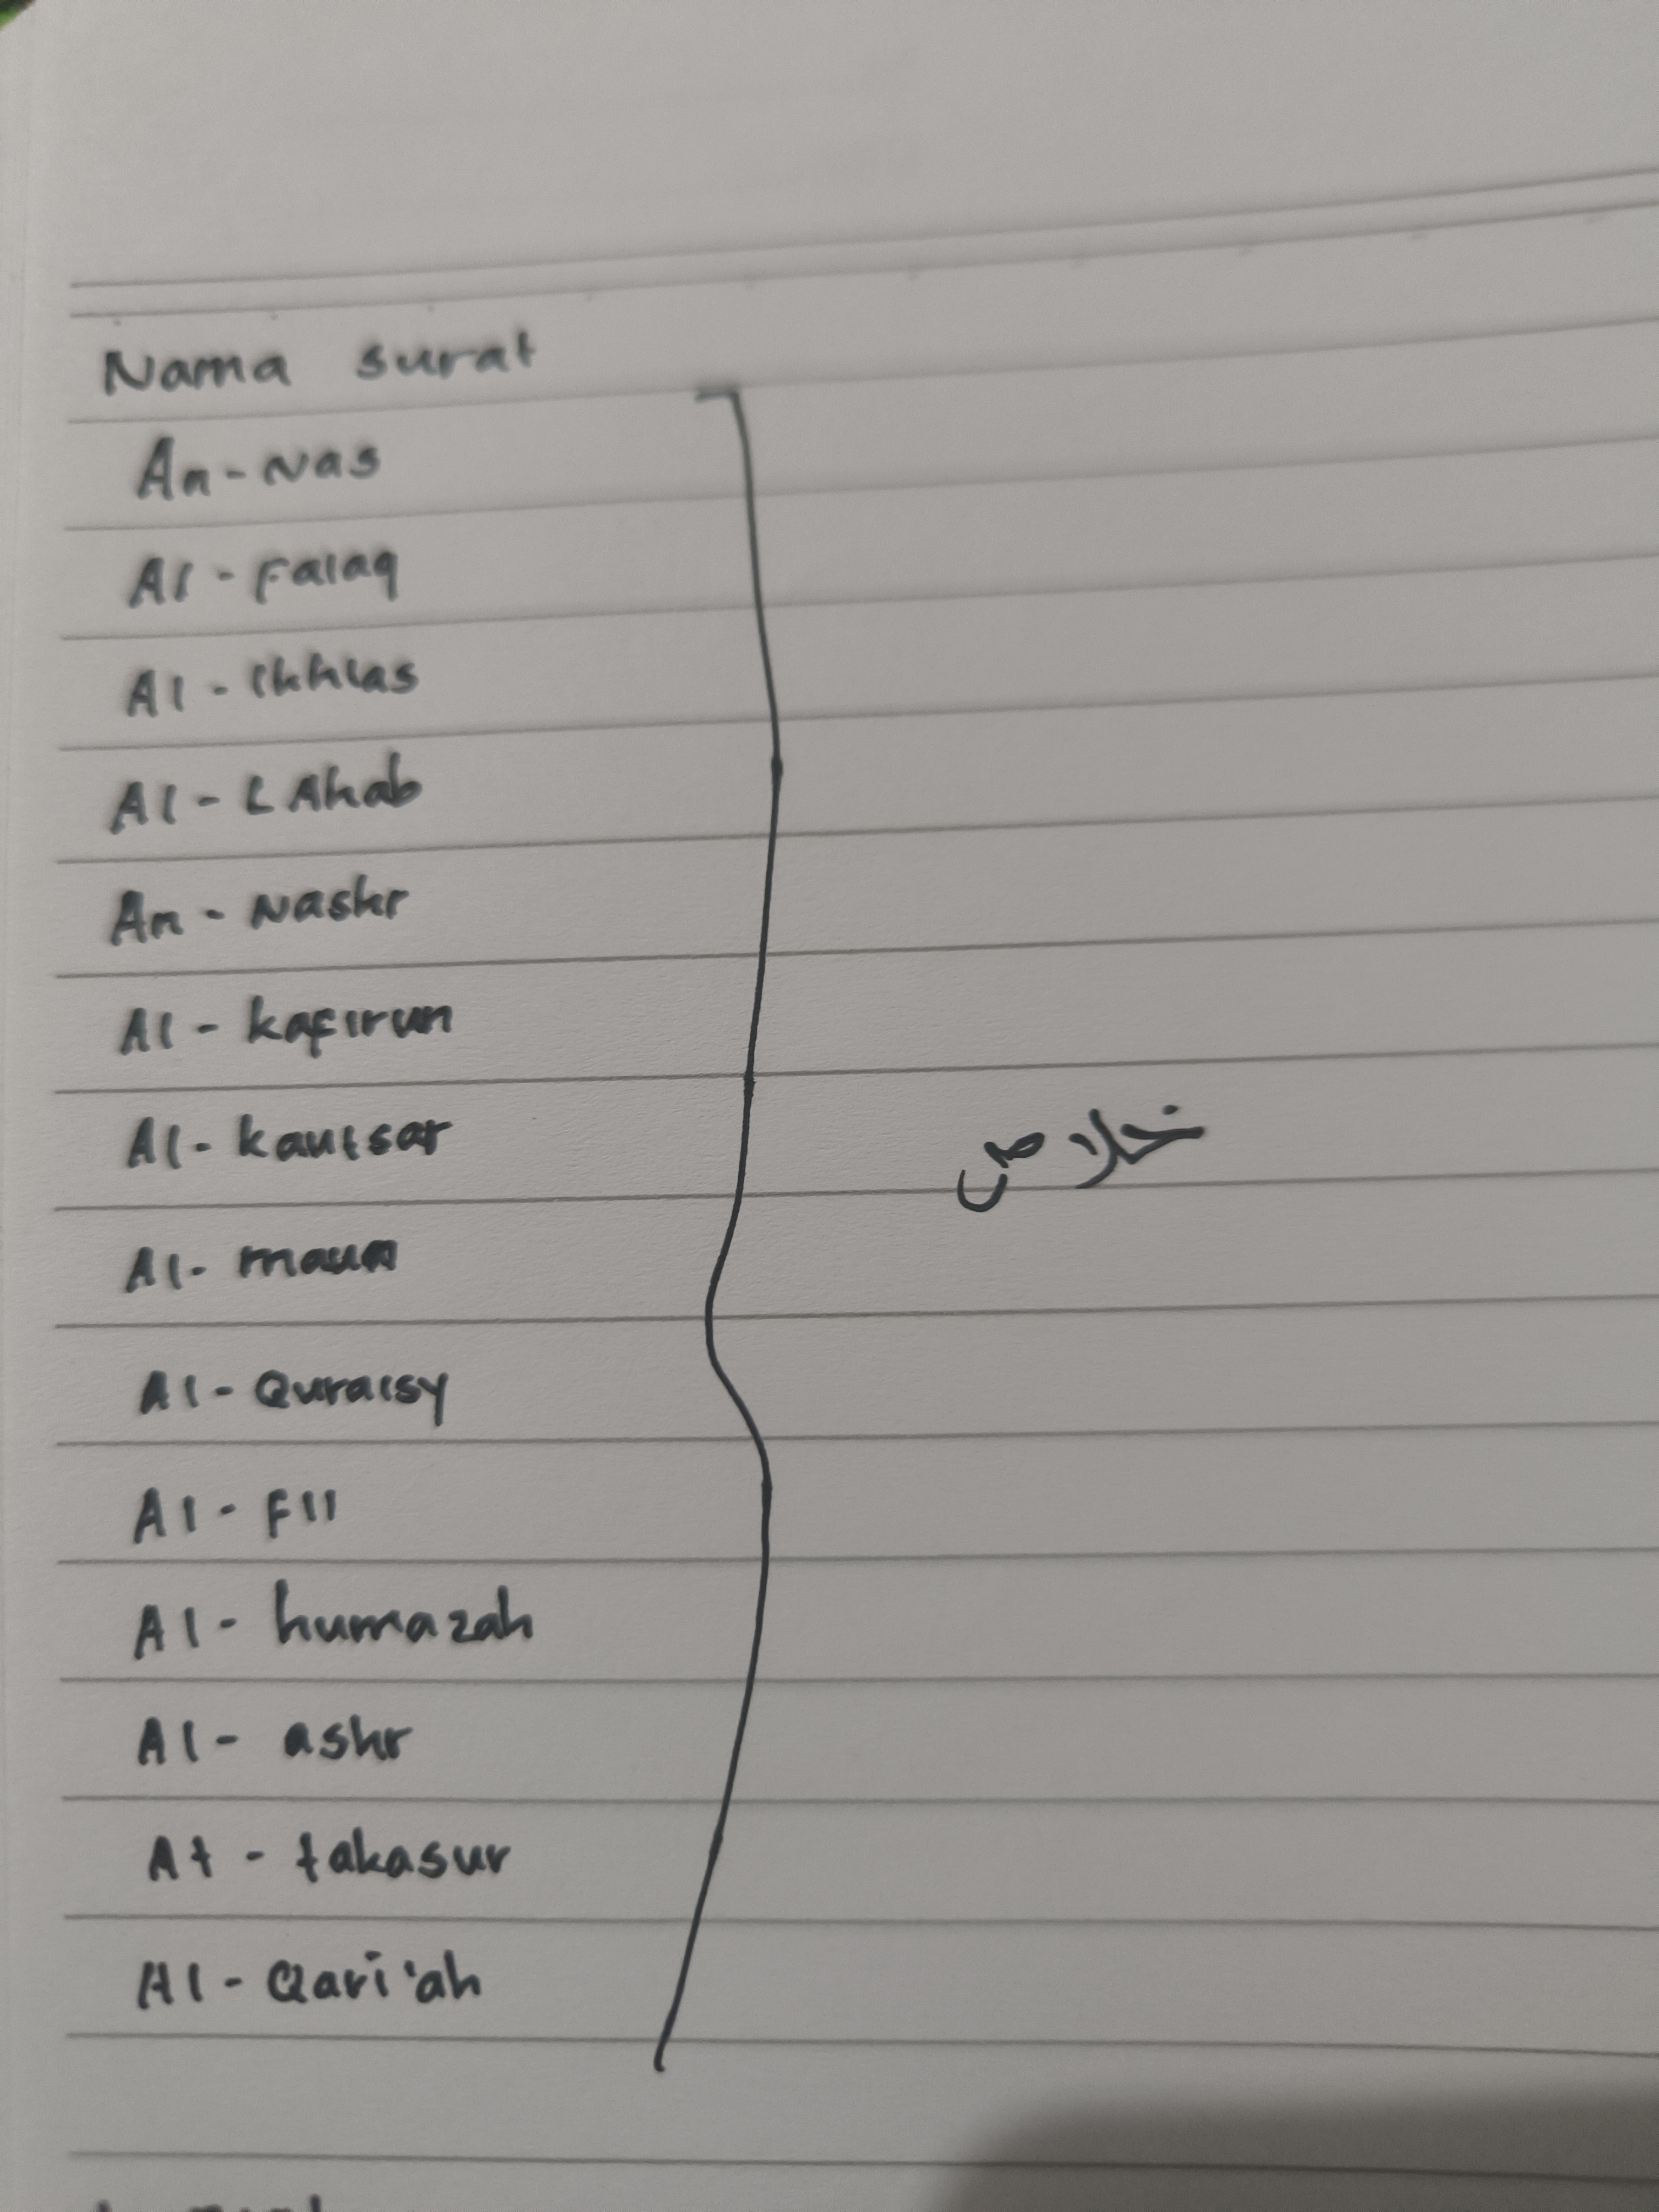 Nama surat
An-Nas
Al-Falaq
Al-Ikhlas
Al-LAhab
An-Nashr
Al-kafirun
Al-kautsar
خلاص
Al-maun
Al-Quraisy
Al-Fil
Al-humazah
Al-ashr
At-takasur
Al-Qari'ah